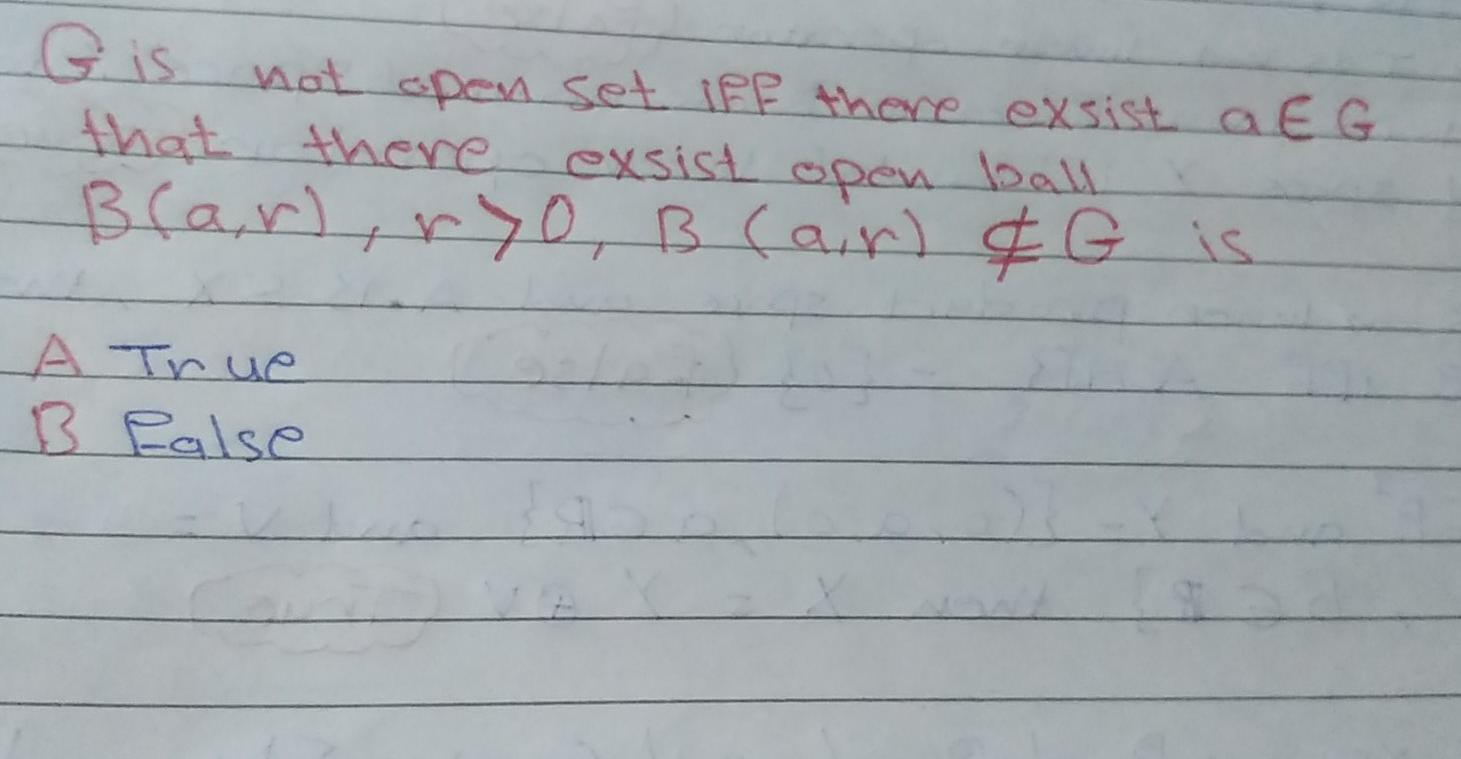 G is not open set iff there exsist a ∈ G
that there exsist open ball
B(a,r), r>0, B(a,r) ⊈ G is
A True
B False